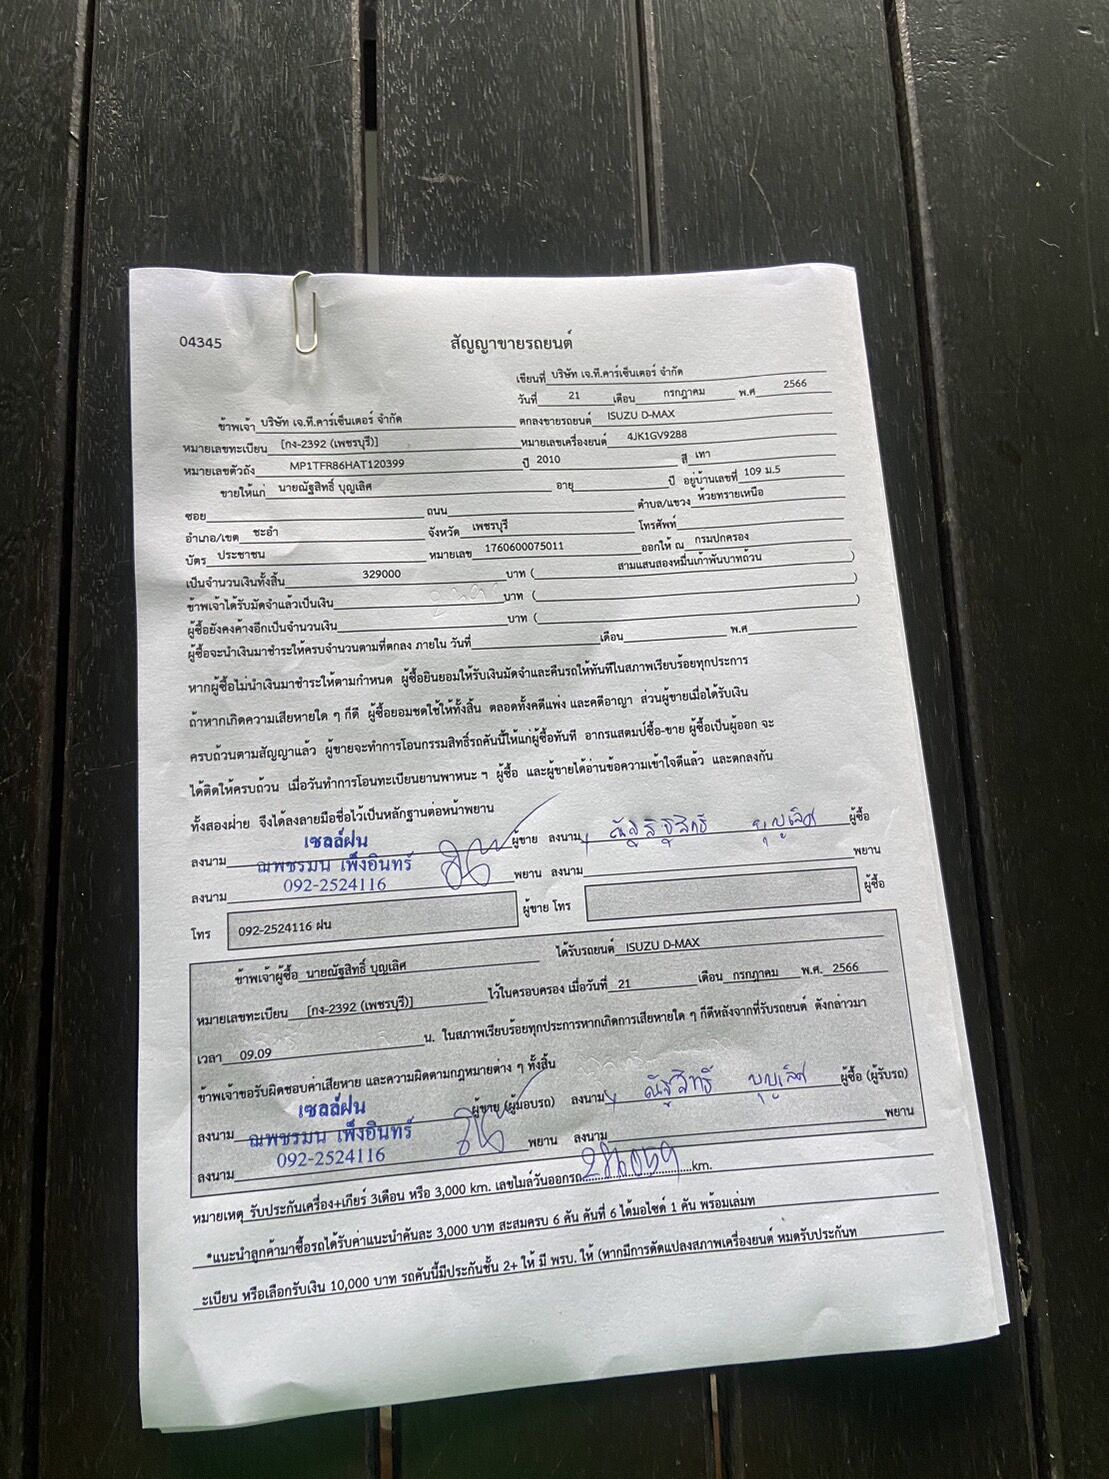 04345
สัญญาขายรถยนต์
เขียนที่ บริษัท เจ.ที.คาร์เซ็นเตอร์ จำกัด
วันที่ 21 เดือน กรกฎาคม พ.ศ 2566
ข้าพเจ้า บริษัท เจ.ที.คาร์เซ็นเตอร์ จำกัด ตกลงขายรถยนต์ ISUZU D-MAX
หมายเลขทะเบียน [กง-2392 (เพชรบุรี)] หมายเลขเครื่องยนต์ 4JK1GV9288
หมายเลขตัวถัง MP1TFR86HAT120399 ปี 2010 สี เทา
ขายให้แก่ นายณัฐสิทธิ์ บุญเลิศ อายุ ปี อยู่บ้านเลขที่ 109 ม.5
ซอย ถนน ตำบล/แขวง ห้วยทรายเหนือ
อำเภอ/เขต ชะอำ จังหวัด เพชรบุรี โทรศัพท์
บัตร ประชาชน หมายเลข 1760600075011 ออกให้ ณ กรมปกครอง
เป็นจำนวนเงินทั้งสิ้น 329000 บาท ( สามแสนสองหมื่นเก้าพันบาทถ้วน )
ข้าพเจ้าได้รับมัดจำแล้วเป็นเงิน บาท ( )
ผู้ซื้อยังคงค้างอีกเป็นจำนวนเงิน บาท ( )
ผู้ซื้อจะนำเงินมาชำระให้ครบจำนวนตามที่ตกลง ภายใน วันที่ เดือน พ.ศ
หากผู้ซื้อไม่นำเงินมาชำระให้ตามกำหนด ผู้ซื้อยินยอมให้รับเงินมัดจำและคืนรถให้ทันทีในสภาพเรียบร้อยทุกประการ
ถ้าหากเกิดความเสียหายใด ๆ ก็ดี ผู้ซื้อยอมชดใช้ให้ทั้งสิ้น ตลอดทั้งคดีแพ่ง และคดีอาญา ส่วนผู้ขายเมื่อได้รับเงิน
ครบถ้วนตามสัญญาแล้ว ผู้ขายจะทำการโอนกรรมสิทธิ์รถคันนี้ให้แก่ผู้ซื้อทันที อากรแสตมป์ซื้อ-ขาย ผู้ซื้อเป็นผู้ออก จะ
ได้ติดให้ครบถ้วน เมื่อวันทำการโอนทะเบียนยานพาหนะ ฯ ผู้ซื้อ และผู้ขายได้อ่านข้อความเข้าใจดีแล้ว และตกลงกัน
ทั้งสองฝ่าย จึงได้ลงลายมือชื่อไว้เป็นหลักฐานต่อหน้าพยาน
เซลล์ฝน
ลงนาม ณพชรมน เพ็งอินทร์ ผู้ขาย ลงนาม ณัฐสิทธิ์ บุญเลิศ ผู้ซื้อ
ลงนาม 092-2524116 พยาน ลงนาม พยาน
โทร 092-2524116 ฝน ผู้ขาย โทร ผู้ซื้อ
ข้าพเจ้าผู้ซื้อ นายณัฐสิทธิ์ บุญเลิศ ได้รับรถยนต์ ISUZU D-MAX
หมายเลขทะเบียน [กง-2392 (เพชรบุรี)] ไว้ในครอบครอง เมื่อวันที่ 21 เดือน กรกฎาคม พ.ศ. 2566
เวลา 09.09 น. ในสภาพเรียบร้อยทุกประการหากเกิดการเสียหายใด ๆ ก็ดีหลังจากที่รับรถยนต์ ดังกล่าวมา
ข้าพเจ้าขอรับผิดชอบค่าเสียหาย และความผิดตามกฎหมายต่าง ๆ ทั้งสิ้น
เซลล์ฝน
ลงนาม ณพชรมน เพ็งอินทร์ ผู้ขาย (ผู้มอบรถ) ลงนาม ณัฐสิทธิ์ บุญเลิศ ผู้ซื้อ (ผู้รับรถ)
ลงนาม 092-2524116 พยาน ลงนาม พยาน
หมายเหตุ รับประกันเครื่อง+เกียร์ 3เดือน หรือ 3,000 km. เลขไมล์วันออกรถ km.
*แนะนำลูกค้ามาซื้อรถได้รับค่าแนะนำคันละ 3,000 บาท สะสมครบ 6 คัน คันที่ 6 ได้มอไซด์ 1 คัน พร้อมเล่มท
ะเบียน หรือเลือกรับเงิน 10,000 บาท รถคันนี้มีประกันชั้น 2+ ให้ มี พรบ. ให้ (หากมีการดัดแปลงสภาพเครื่องยนต์ หมดรับประกันท